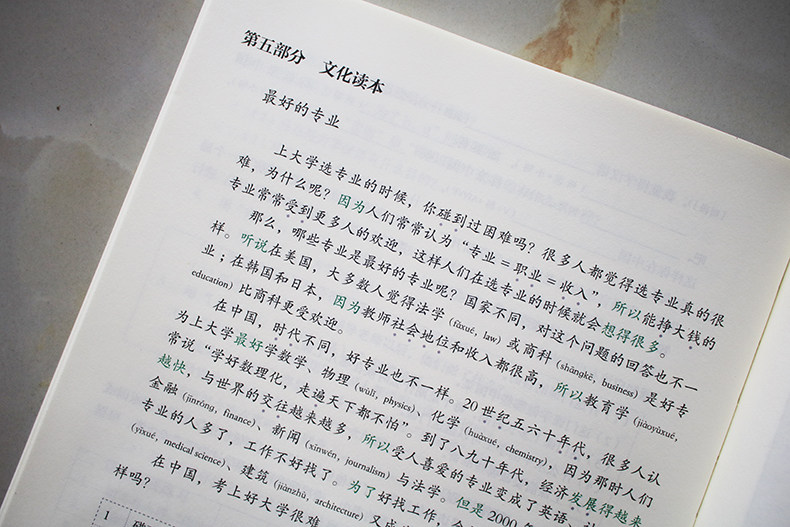 第五部分 文化读本
最好的专业
上大学选专业的时候,你碰到过困难吗?很多人都觉得选专业真的很
难,为什么呢?因为人们常常认为“专业=职业=收入”,所以能挣大钱的
专业常常受到更多人的欢迎,这样人们在选专业的时候就会想得很多。
那么,哪些专业是最好的专业呢?国家不同,对这个问题的回答也不一
样。听说在美国,大多数人觉得法学(fǎxué, law)或商科(shāngkē, business)是好专
业;在韩国和日本,因为教师社会地位和收入都很高,所以教育学(jiàoyùxué,
education)比商科更受欢迎。
在中国,时代不同,好专业也不一样。20世纪五六十年代,很多人认
为上大学最好学数学、物理(wùlǐ, physics)、化学(huàxué, chemistry),因为那时人们
常说“学好数理化,走遍天下都不怕”。到了八九十年代,经济发展得越来
越快,与世界的交往越来越多,所以受人喜爱的专业变成了英语、
金融(jīnróng, finance)、新闻(xīnwén, journalism)与法学。但是2000
专业的人多了,工作不好找了。为了好找工作,
(yīxué, medical science)、建筑(jiànzhù, architecture)又
在中国,考上好大学很难
样吗?
1